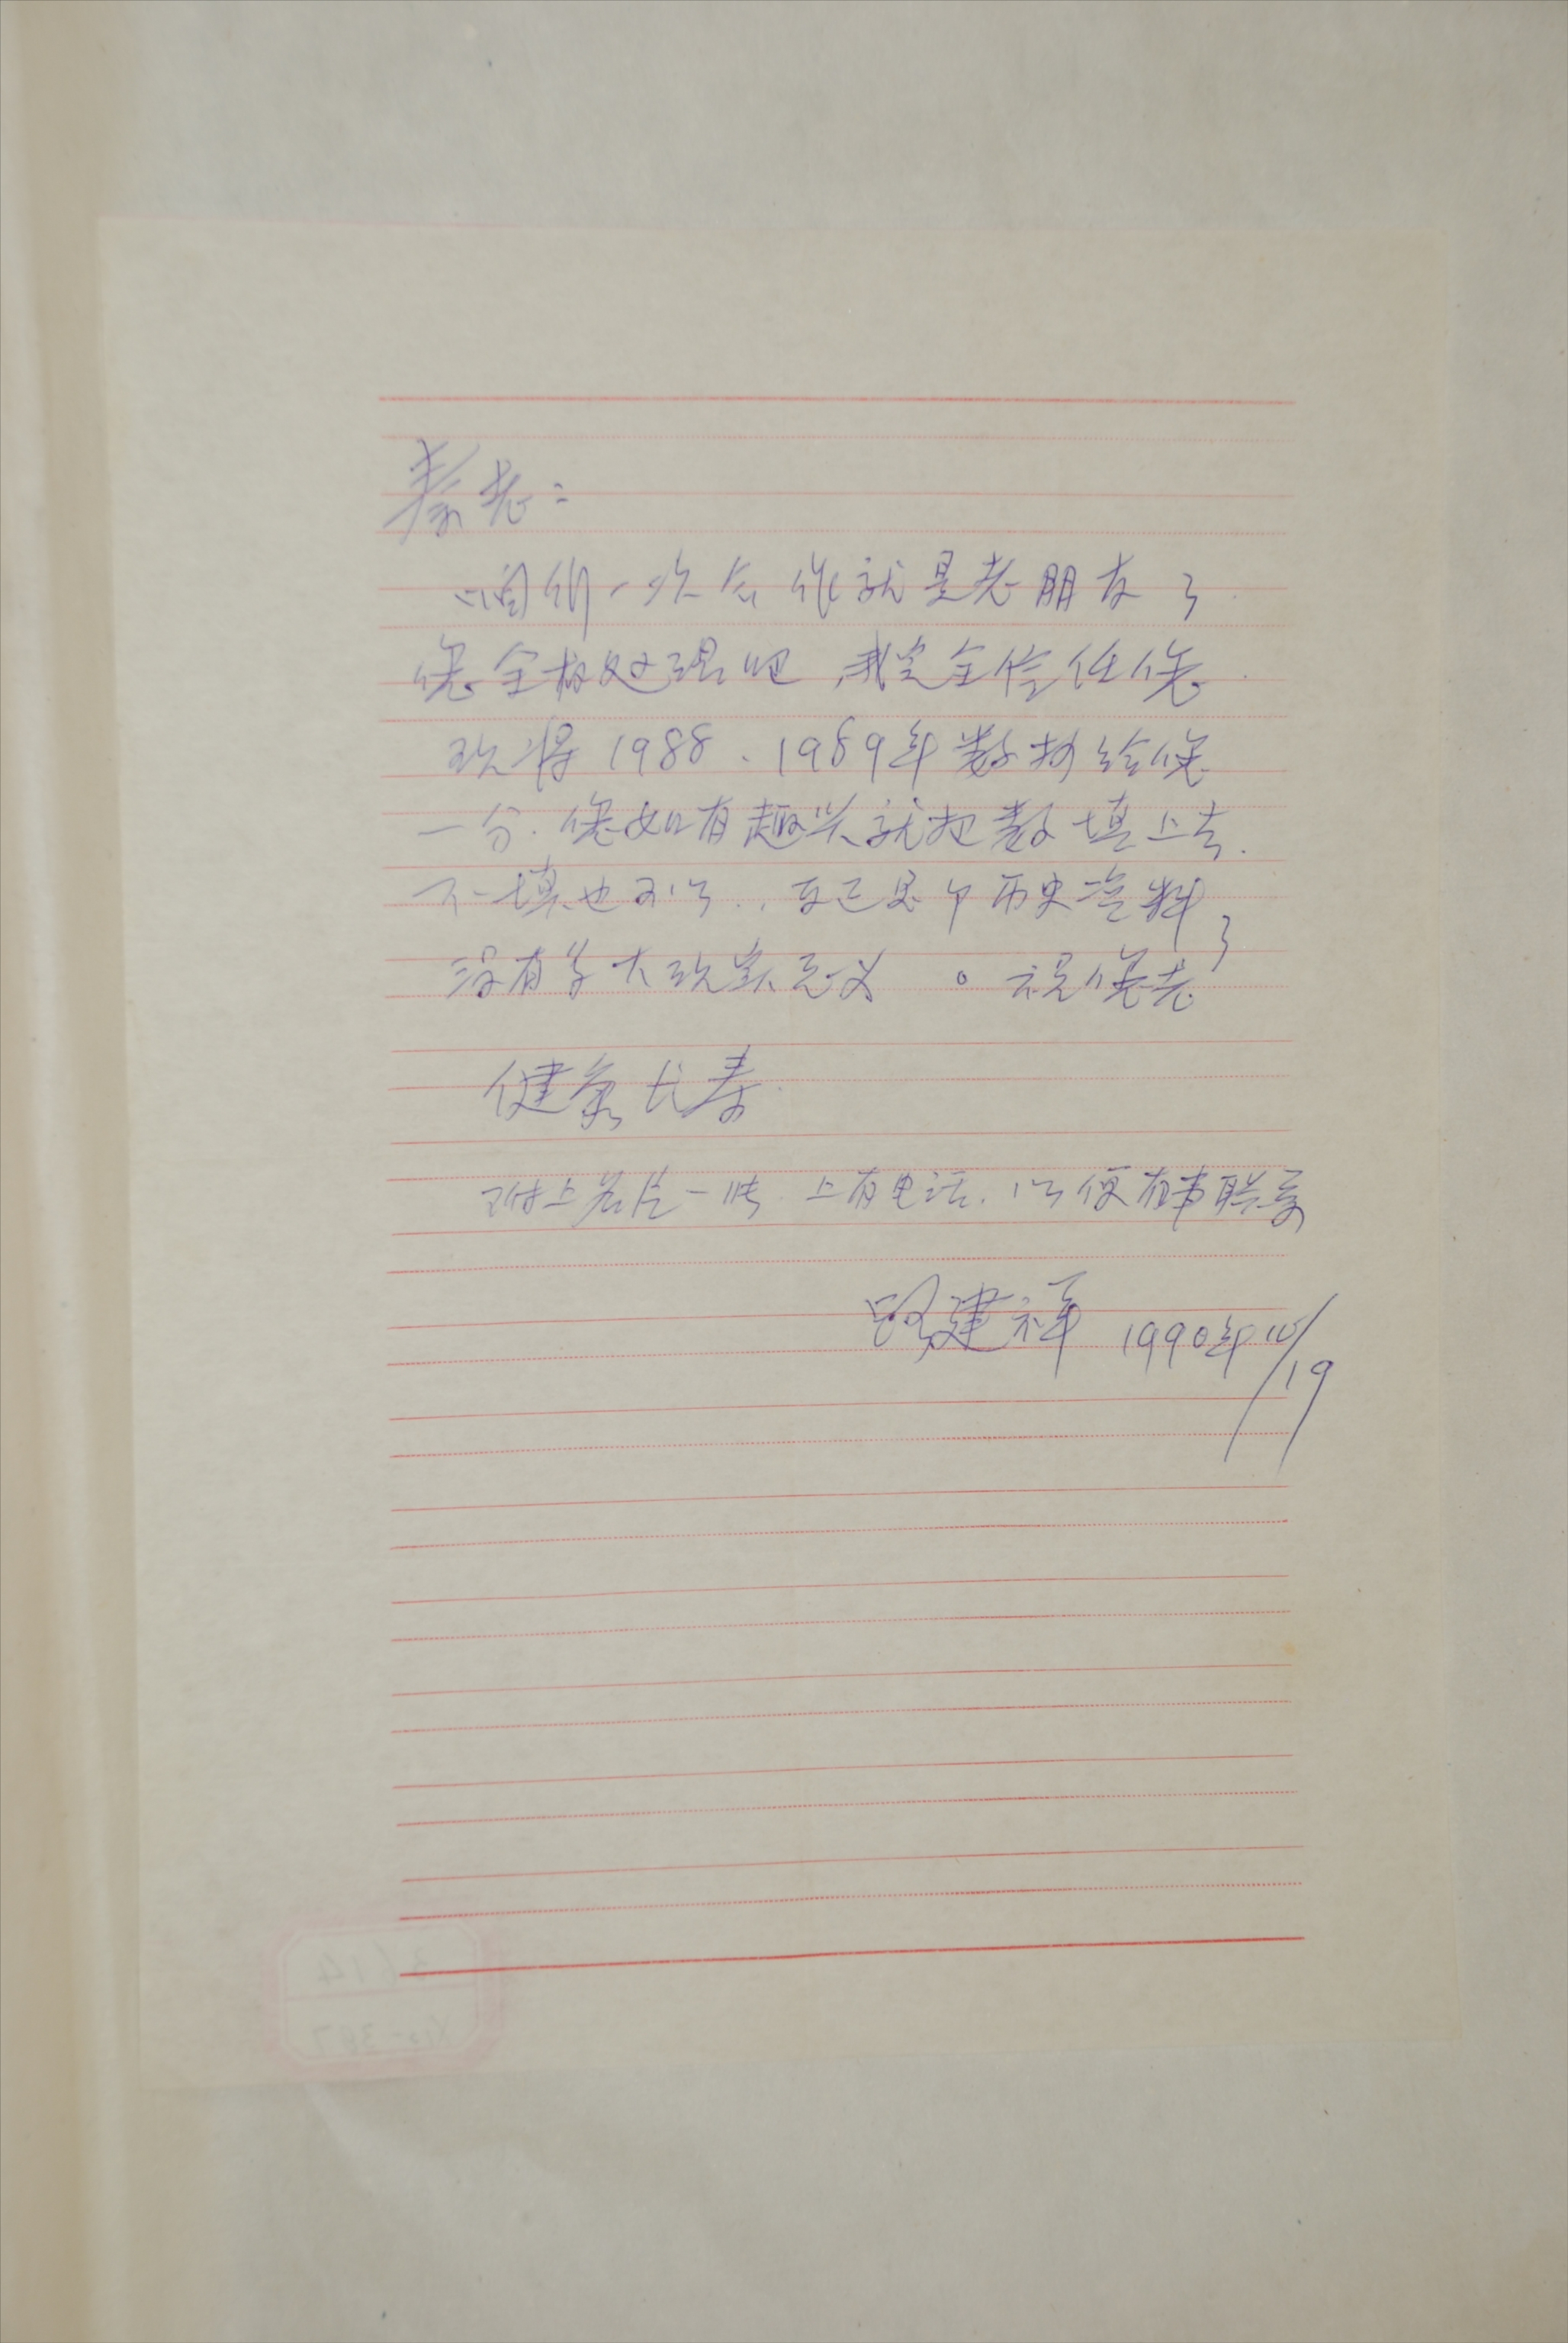 秦老:
咱们一次合作就是老朋友了.
您全权处理吧,我完全信任您.
现将1988、1989年数抄给您
一分.您如有趣兴就把数填上去.
不填也可以..反正是个历史资料,
没有多大现实意义了。祝您老
健康长寿.
附上名片一张.上有电话.以便有事联系
路建祥 1990年10/19